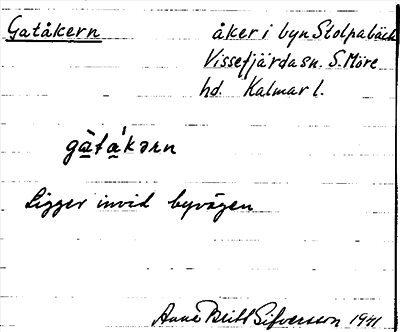 Gatåkern åker i byn Stolpabäck
Vissefjärda sn. S. Möre
hd. Kalmar l.
gàtá'kərn
Ligger invid byvägen
Anna Britt Sifversson 1941